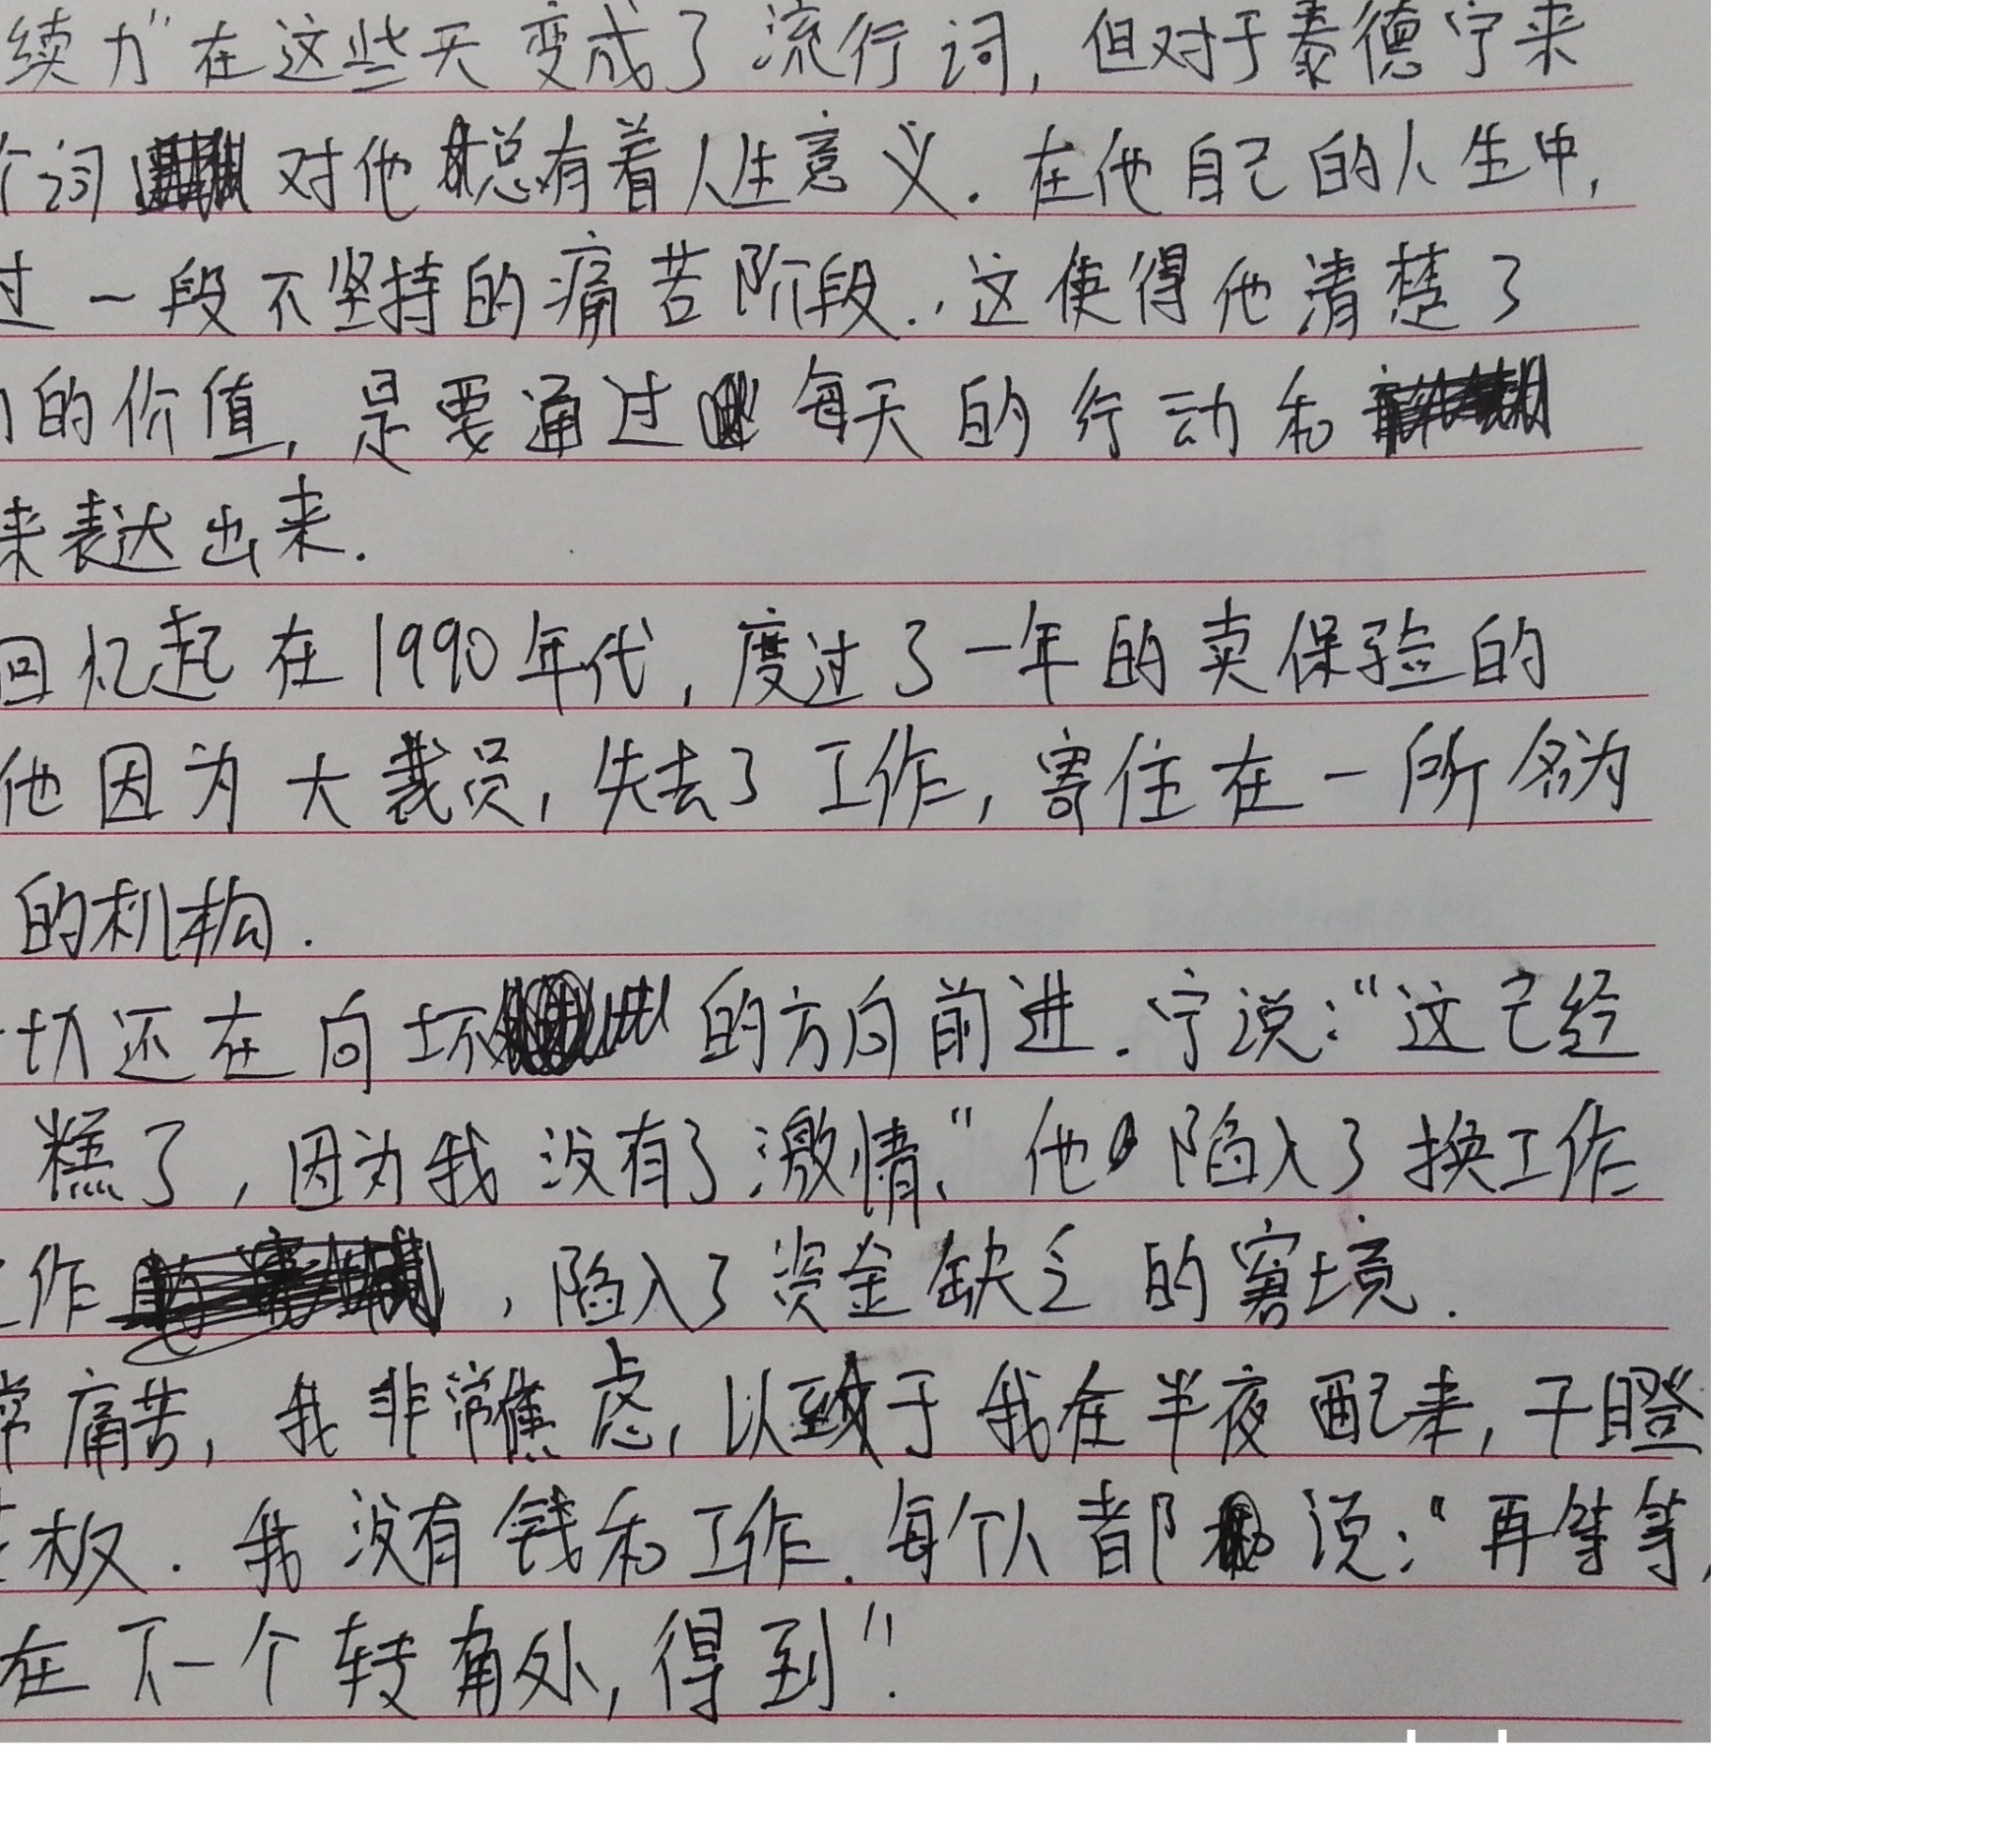 续力"在这些天变成了流行词,但对于泰德宁来
个词 对他总有着人生意义.在他自己的人生中,
过一段不坚持的痛苦阶段.,这使得他清楚了
的价值,是要通过每天的行动和
来表达出来.
回忆起在1990年代,度过了一年的卖保险的
他因为大裁员,失去了工作,寄住在一所名为
的机构.
切还在向坏的方向前进.宁说:"这已经
糕了,因为我没有了激情."他陷入了换工作
作,陷入了资金缺乏的窘境.
常痛苦,我非常焦虑,以致于我在半夜醒来,干瞪
板.我没有钱和工作.每个人都说:"再等等,
在下一个转角处,得到".